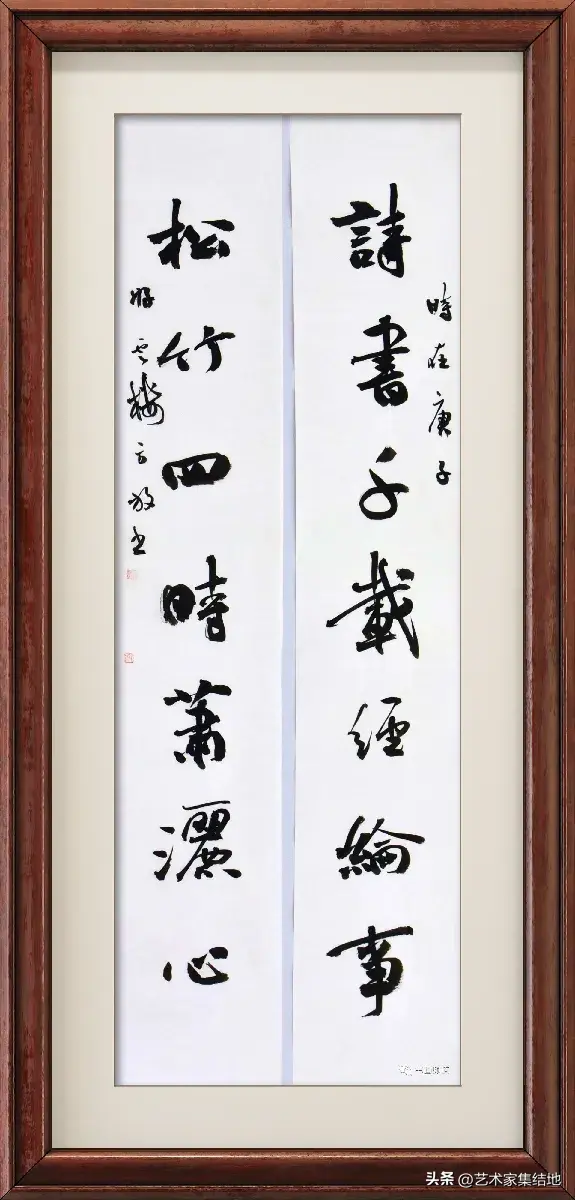 時在庚子
詩書千載經綸事
松竹四時蕭灑心
云樓方放书
头条 @艺术家集结地